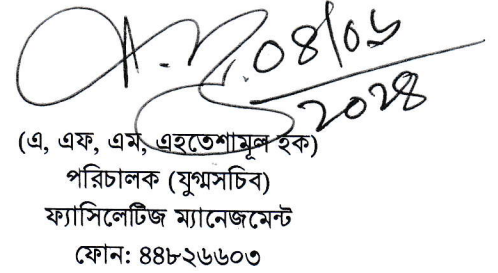 ০৪/০৬
২০২৪
(এ, এফ, এম, এহতেশামূল হক)
পরিচালক (যুগ্মসচিব)
ফ্যাসিলেটিজ ম্যানেজমেন্ট
ফোন: ৪৪৮২৬৬০৩